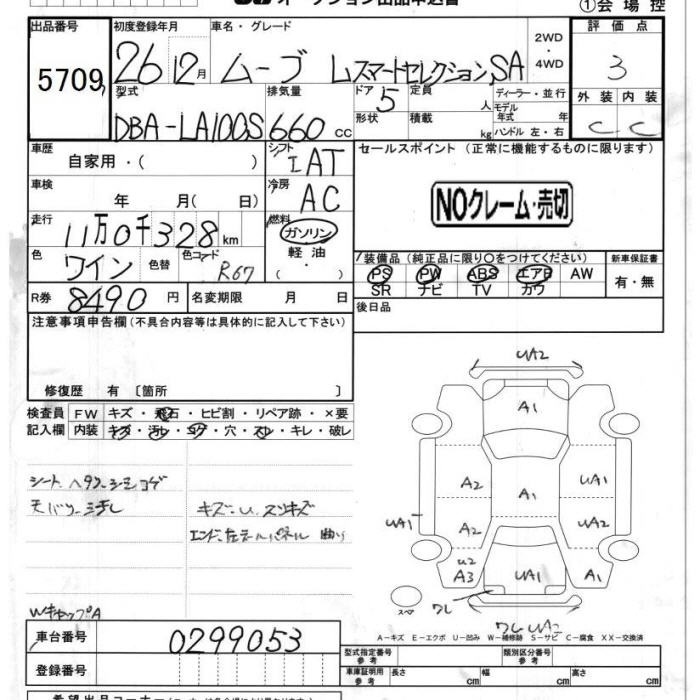 ①会場控
出品番号
5709
初度登録年月
26 12月
車名・グレード
ムーブ LスマートセレクションSA
2WD
・
4WD
評価点
3
外装 内装
C C
型式
DBA-LA100S
排気量
660cc
ドア
5
形状
定員
人
積載
kg
ディーラー・並行
モデル
年式 年
ハンドル 左・右
車歴
自家用・( )
シフト
IAT
車検
年 月( 日)
冷房
AC
走行
11万0千328km
燃料
ガソリン
軽油
・( )
色
ワイン
色替
色コード
R67
R券
8490円
名変期限 月 日
セールスポイント (正常に機能するものに限ります)
NOクレーム・売切
装備品 (純正品に限り○をつけてください)
PS PW ABS エアB AW
SR ナビ TV カワ
新車保証書
有・無
後日品
注意事項申告欄(不具合内容等は具体的に記入して下さい)
修復歴 有 〔箇所 〕
検査員
記入欄
FW キズ・飛石・ヒビ割・リペア跡・×要
内装 キズ・汚レ・コゲ・穴・スレ・キレ・破レ
シート
天バリ
キズ・U
Wキャップ A
UA2
A1
A2
UA1
A1
UA1
A2
UA2
U2
A3
UA1
A1
スペ
ワレ
ワレ UA2
A-キズ E-エクボ U-凹み W-補修跡 S-サビ C-腐食 XX-交換済
車台番号
0299053
登録番号
型式指定番号
参考
類別区分番号
参考
車庫証明用
参考
長さ cm
幅 cm
高さ cm